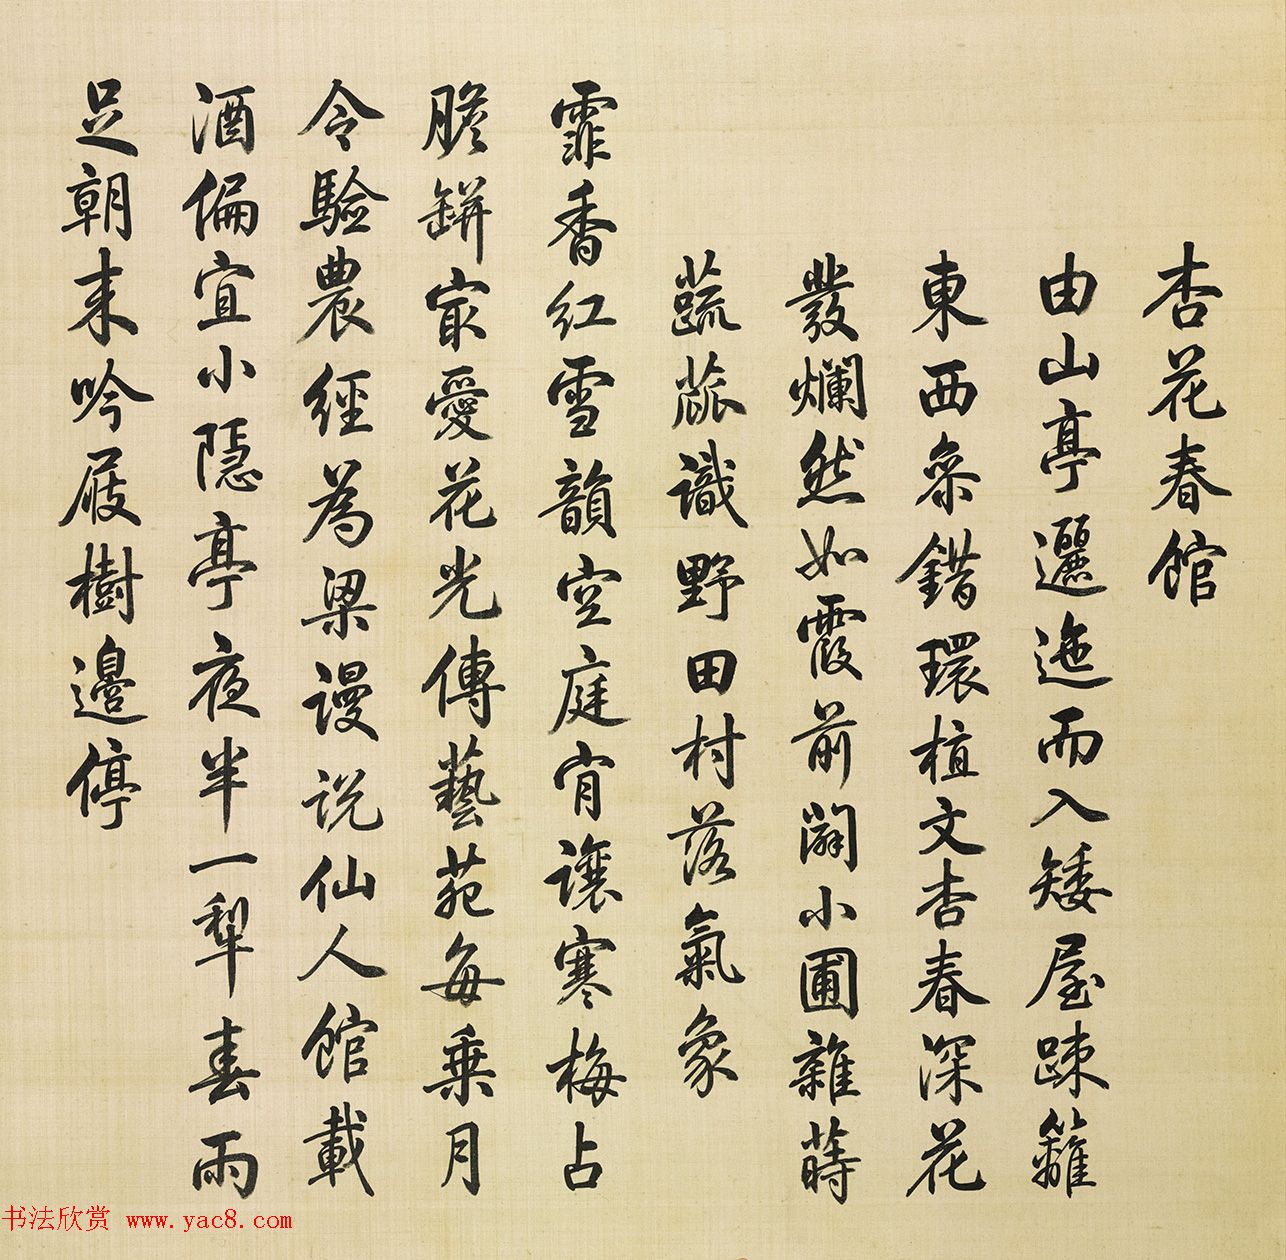 杏花春館
由山亭邐迤而入矮屋疎籬
東西叅錯環植文杏春深花
發爛然如霞前闢小圃雜蒔
蔬蓏識野田村落氣象
霏香紅雪韻空庭肯讓寒梅占
膽缾㝡愛花光傳藝苑每乗月
令驗農經為梁謾説仙人館載
酒偏宜小隱亭夜半一犂春雨
足朝来吟屐樹邊停
书法欣赏 www.yac8.com